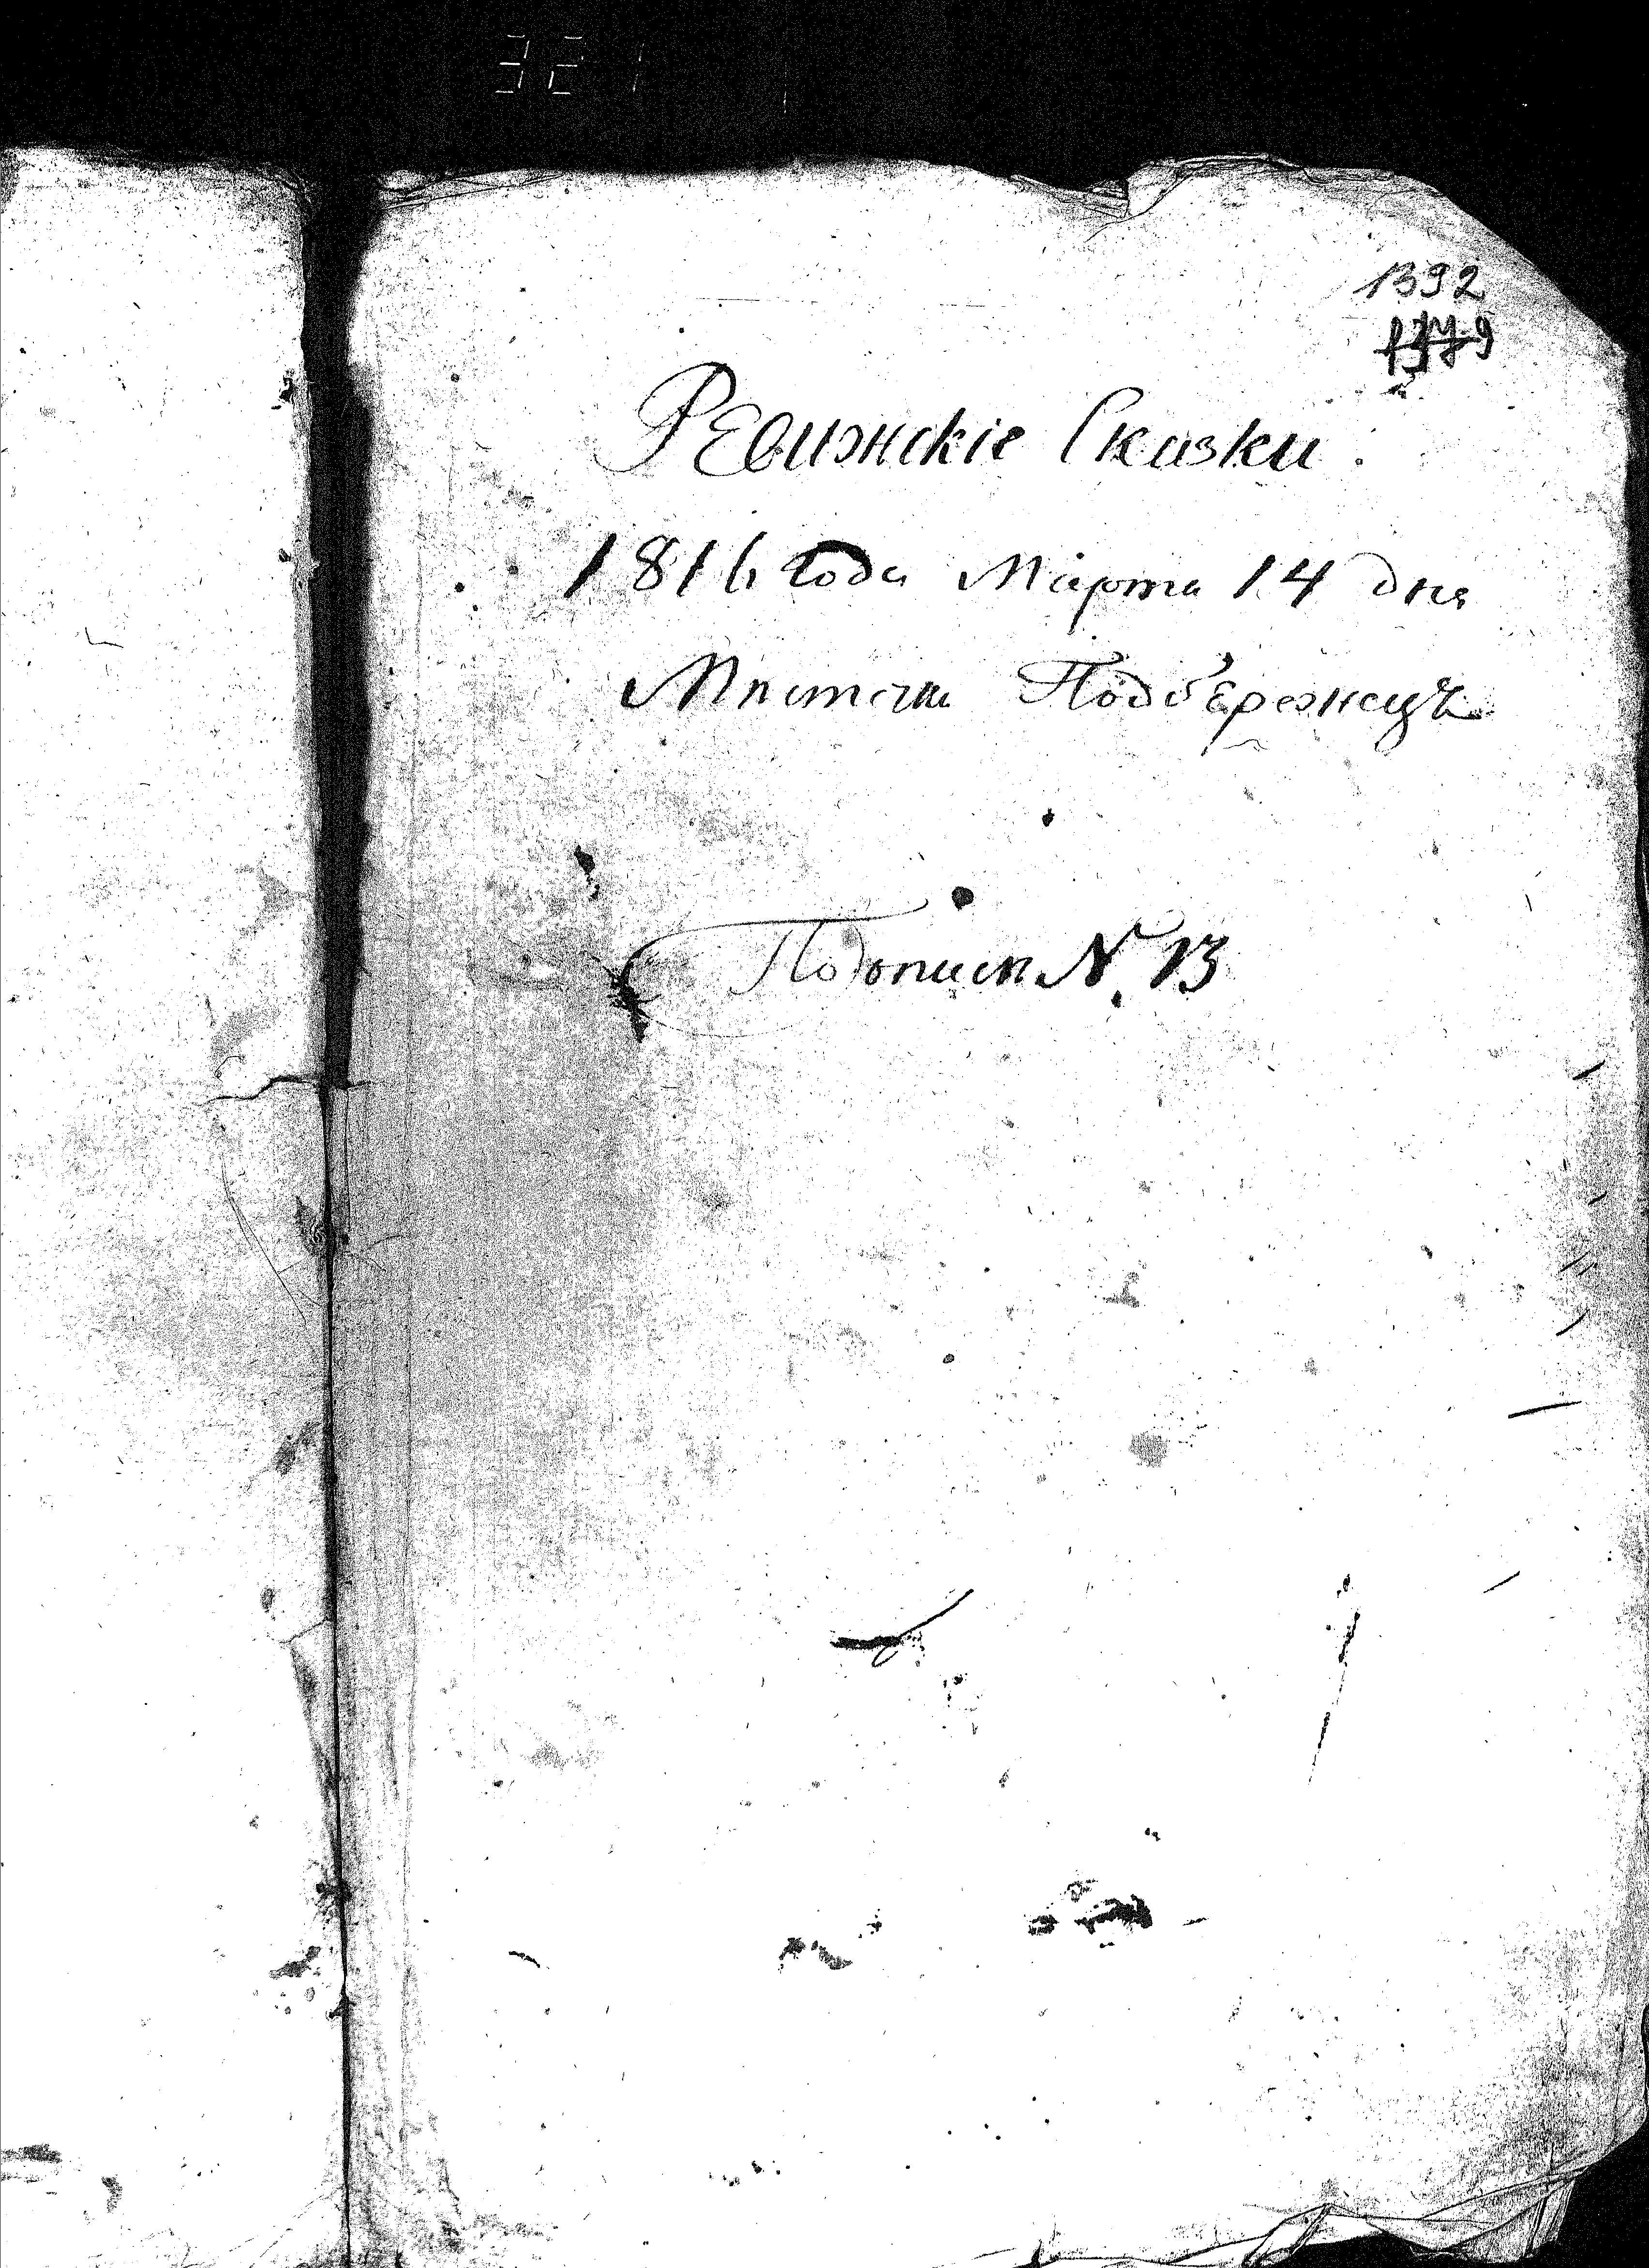 321
1392
Ревижскіе Сказки.
1816 Года Марта 14 дня
Мѣстечка Подберезецъ
По описи №. 13